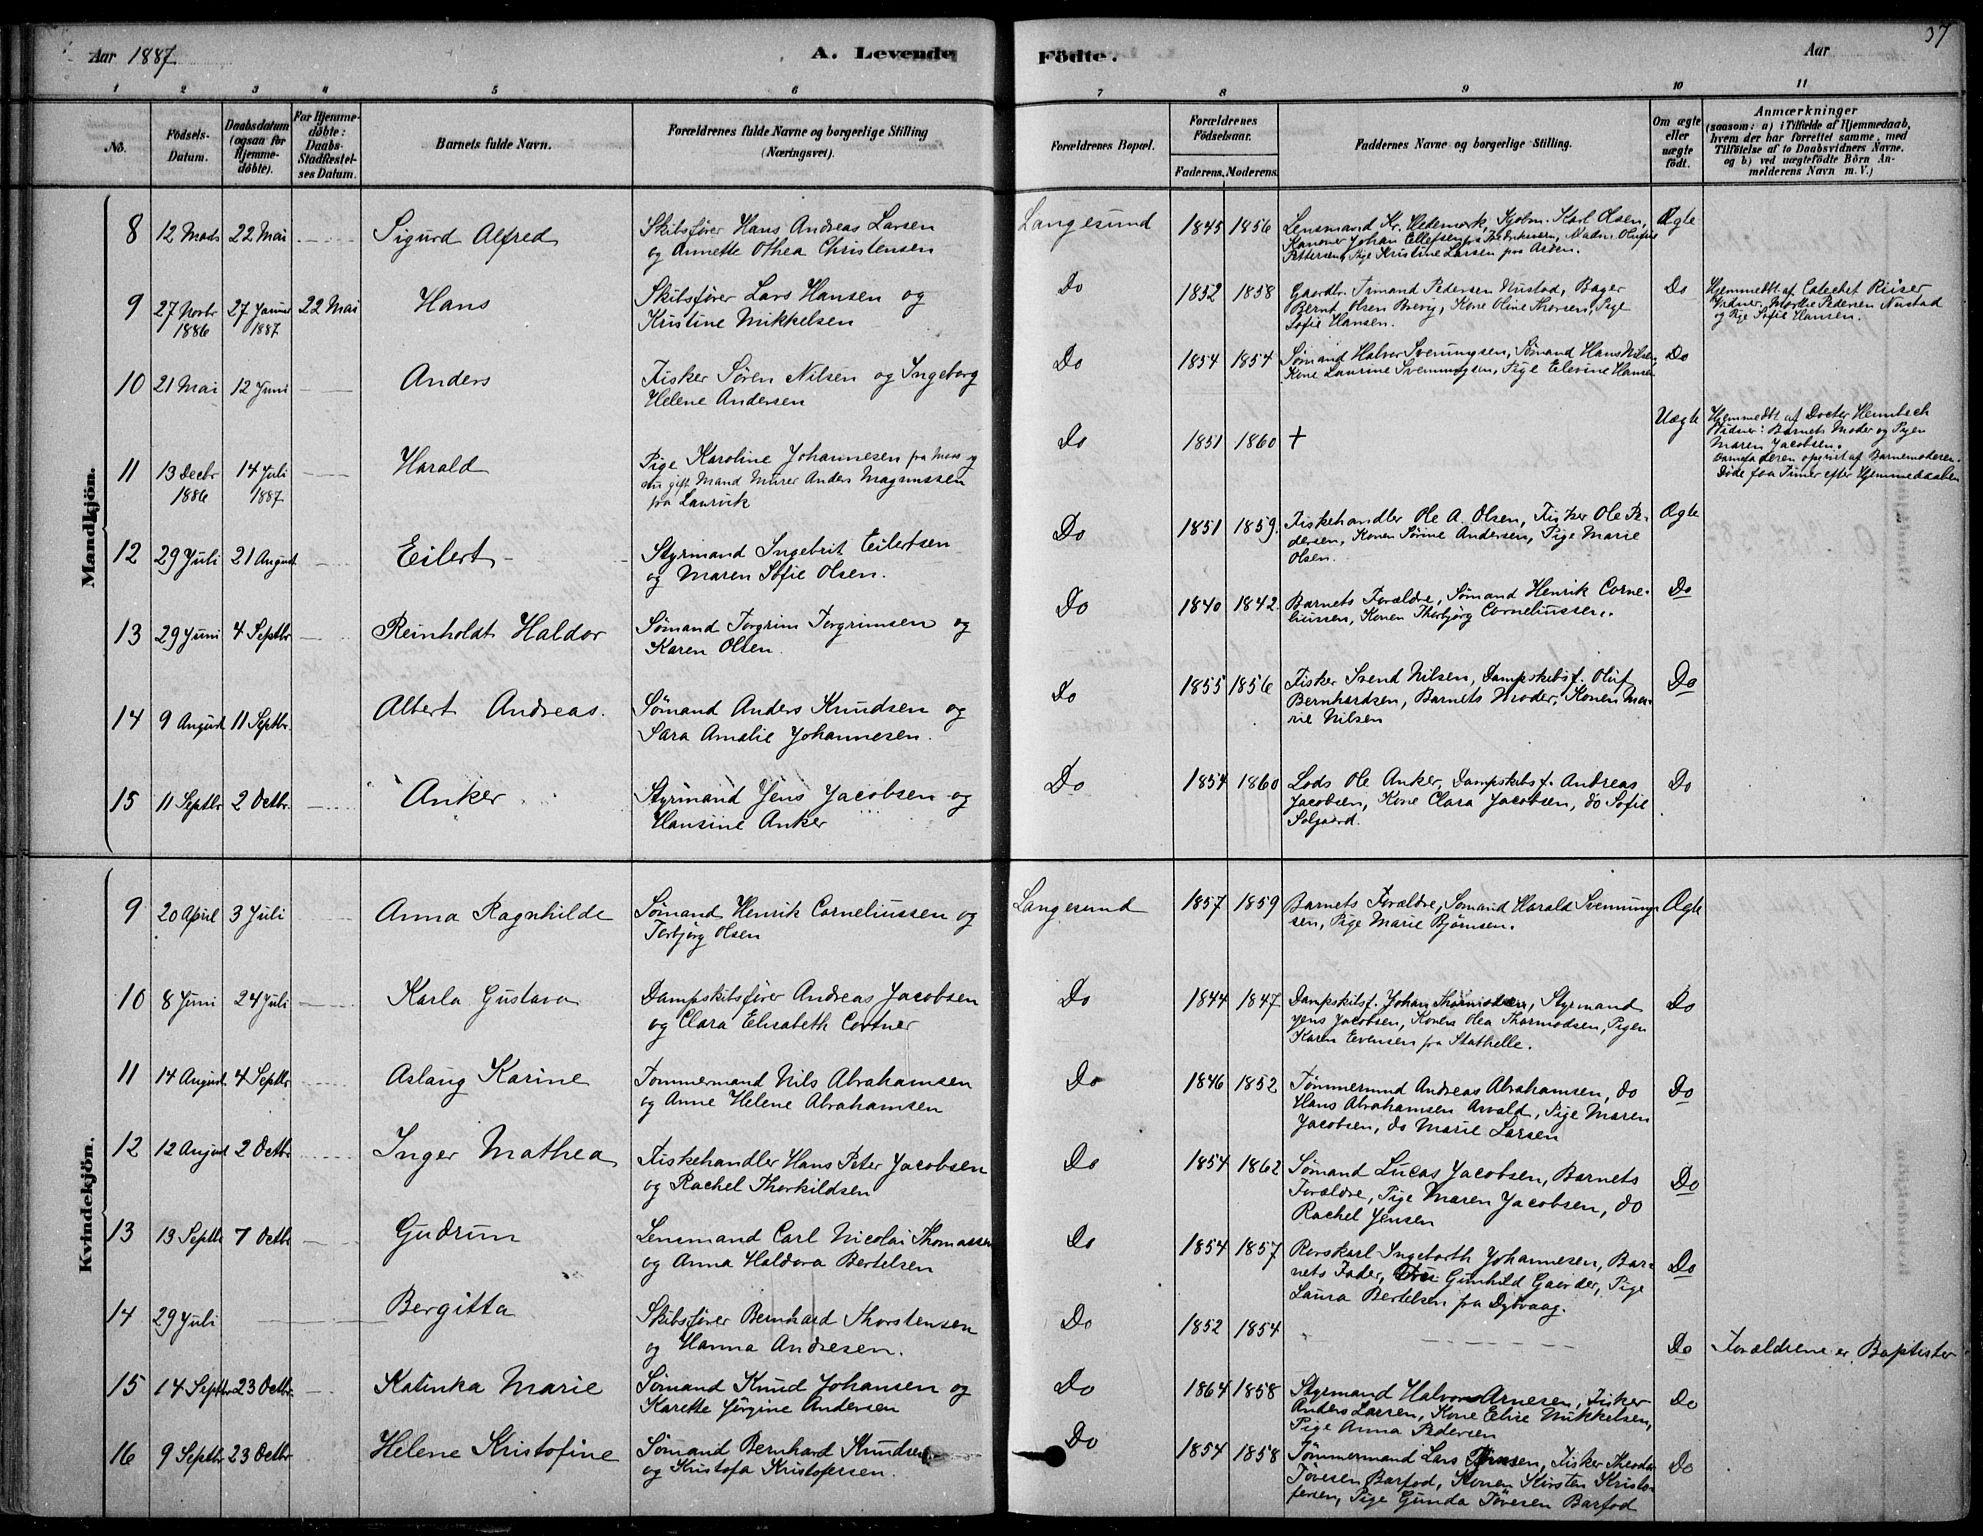 Aar 1887.
A. Levende
Födte.
Aar
37
1 2 3 4 5 6 7 8 9 10 11
No.
Födsels-
Datum.
Daabsdatum
(ogsaa for
Hjemme-
döbte).
For Hjemme-
döbte:
Daabs-
Stadfæstel-
ses Datum.
Barnets fulde Navn.
Forældrenes fulde Navne og borgerlige Stilling
(Næringsvei).
Forældrenes Bopæl.
Forældrenes
Födselsaar.
Faderens. Moderens.
Faddernes Navne og borgerlige Stilling.
Om ægte
eller
uægte
födt.
Anmærkninger
(saasom: a) i Tilfælde af Hjemmedaab,
hvem der har forrettet samme, med
Tilföielse af to Daabsvidners Navne.
og b) ved uægtefödte Börn An-
melderens Navn m. V.)
Mandkjön.
8 12 Marts 22 Mai Sigurd Alfred
Skibsfører Hans Andreas Larsen
og Annette Othea Christensen
Langesund 1845 1856
Lensmand Kr. Hedemark, Kjøbm. Karl Olsen,
Konen Johan Ellefsen fra Fredriksværn, Madm. Olufine
Pettersen, Pige Kristine Larsen fra
Ægte
9 27 Novbr 27 Januar 22 Mai Hans
1886 1887
Skibsfører Lars Hansen og
Kristine Mikkelsen
Do 1852 1858
Gaardbr. Simand Pedersen Nustad, Bager
Bernt Olsen Brevig, Kone Oline Thorsen, Pige
Sofie Hansen.
Do
Hjemmedbt af Catechet Riiser
Vidner, Marthe Pedersen Nustad
og Pige Sofie Hansen.
10 21 Mai 12 Juni Anders
Fisker Søren Nilsen og Ingeborg
Helene Andersen
Do 1854 1854
Sømand Halvor Svenningsen, Sømand Hans Nilsen
Kone Laurine Svenningsen, Pige Elevine Hansen
Do
11 13 Decbr 14 Juli Harald
1886 1887
Pige Karoline Johannesen fra Moss og
gift Mand Murer Anders Magnussen
fra Laurvik
Do 1851 1860 +
Uægte
Hjemmedbt af Docter Heimbech
Vidner: Barnets Moder og Pigen
Maren Jacobsen.
Barnefaderen opgivet af Barnemoderen.
Døde faa Timer efter Hjemmedaaben
12 29 Juli 21 August Eilert
Styrmand Ingebrit Eilertsen
og Maren Sofie Olsen.
Do 1851 1859.
Fiskehandler Ole A. Olsen, Fisker Ole Pe-
dersen, Konen Sørine Andersen, Pige Marie
Olsen.
Ægte
13 29 Juni 4 Septbr Reinholdt Haldor
Sømand Torgrim Torgrimsen og
Karen Olsen.
Do 1840 1842.
Barnets Forældre, Sømand Henrik Corne-
liussen, Konen Thorbjørg Corneliussen.
Do
14 9 August 11 Septbr. Albert Andreas.
Sømand Anders Knudsen og
Sara Amalie Johannesen.
Do 1855 1856
Fisker Svend Nilsen, Dampskibsf. Oluf
Bernhardsen, Barnets Moder, Konen Ma-
rie Nilsen
Do
15 11 Septbr. 2 Octbr. Anker
Styrmand Jens Jacobsen og
Hansine Anker
Do 1854 1860
Lods Ole Anker, Dampskibsf. Andreas
Jacobsen, Kone Clara Jacobsen, do Sofie
Solgaard.
Do
Kvindekjön.
9 20 April 3 Juli Anna Ragnhilde
Sømand Henrik Corneliussen og
Torbjørg Olsen
Langesund 1857 1859
Barnets Forældre, Sømand Harald Svennung-
sen, Pige Marie Bjørnsen.
Ægte
10 8 Juni 24 Juli Karla Gustava
Dampskibsfører Andreas Jacobsen
og Clara Elisabeth Cortner
Do 1844 1847
Dampskibsf. Johan Thormodsen, Styrmand
Jens Jacobsen, Konen Olea Thormodsen, Pigen
Karen Evensen fra Stathelle.
Do
11 14 August 4 Septbr Aslaug Karine
Tømmermand Nils Abrahamsen
og Anne Helene Abrahamsen
Do 1846 1852
Tømmermand Andreas Abrahamsen, do
Hans Abrahamsen Arvald, Pige Maren
Jacobsen, do Marie Larsen
Do
12 12 August 2 Octbr Inger Mathea
Fiskehandler Hans Peter Jacobsen
og Rachel Thorkildsen
Do 1854 1862
Sømand Lucas Jacobsen, Barnets
Forældre, Pige Maren Jacobsen, do
Rachel Jensen
Do
13 13 Septbr 7 Octbr Gudrun
Lensmand Carl Nicolai Thomassen
og Anna Haldora Bertelsen
Do 1854 1857
Rorskarl Ingebarth Johannesen, Bar-
nets Fader, Gunhild Gaarder, Pige
Laura Bertelsen fra Dybvaag.
Do
14 29 Juli Bergitta
Skibsfører Bernhard Thorstensen
og Hanna Andresen.
Do 1852 1854
Do
Forældrene er Baptister
15 14 Septbr 23 Octbr. Katinka Marie
Sømand Knud Johansen og
Karette Jørgine Andersen
Do 1864 1858
Styrmand Halvor Arnesen, Fisker
Anders Larsen, Kone Elise Mikkelsen,
Pige Anna Pedersen
Do
16 9 Septbr 23 Octbr Helene Kristofine
Sømand Bernhard Knudsen
og Kristofa Kristofersen.
Do 1854 1858
Tømmermand Lars Jensen, Fisker Theodor
Tøvesen Barfod, Konen Kirsten Kristo-
fersen, Pige Gunda Tøvesen Barfod
Do